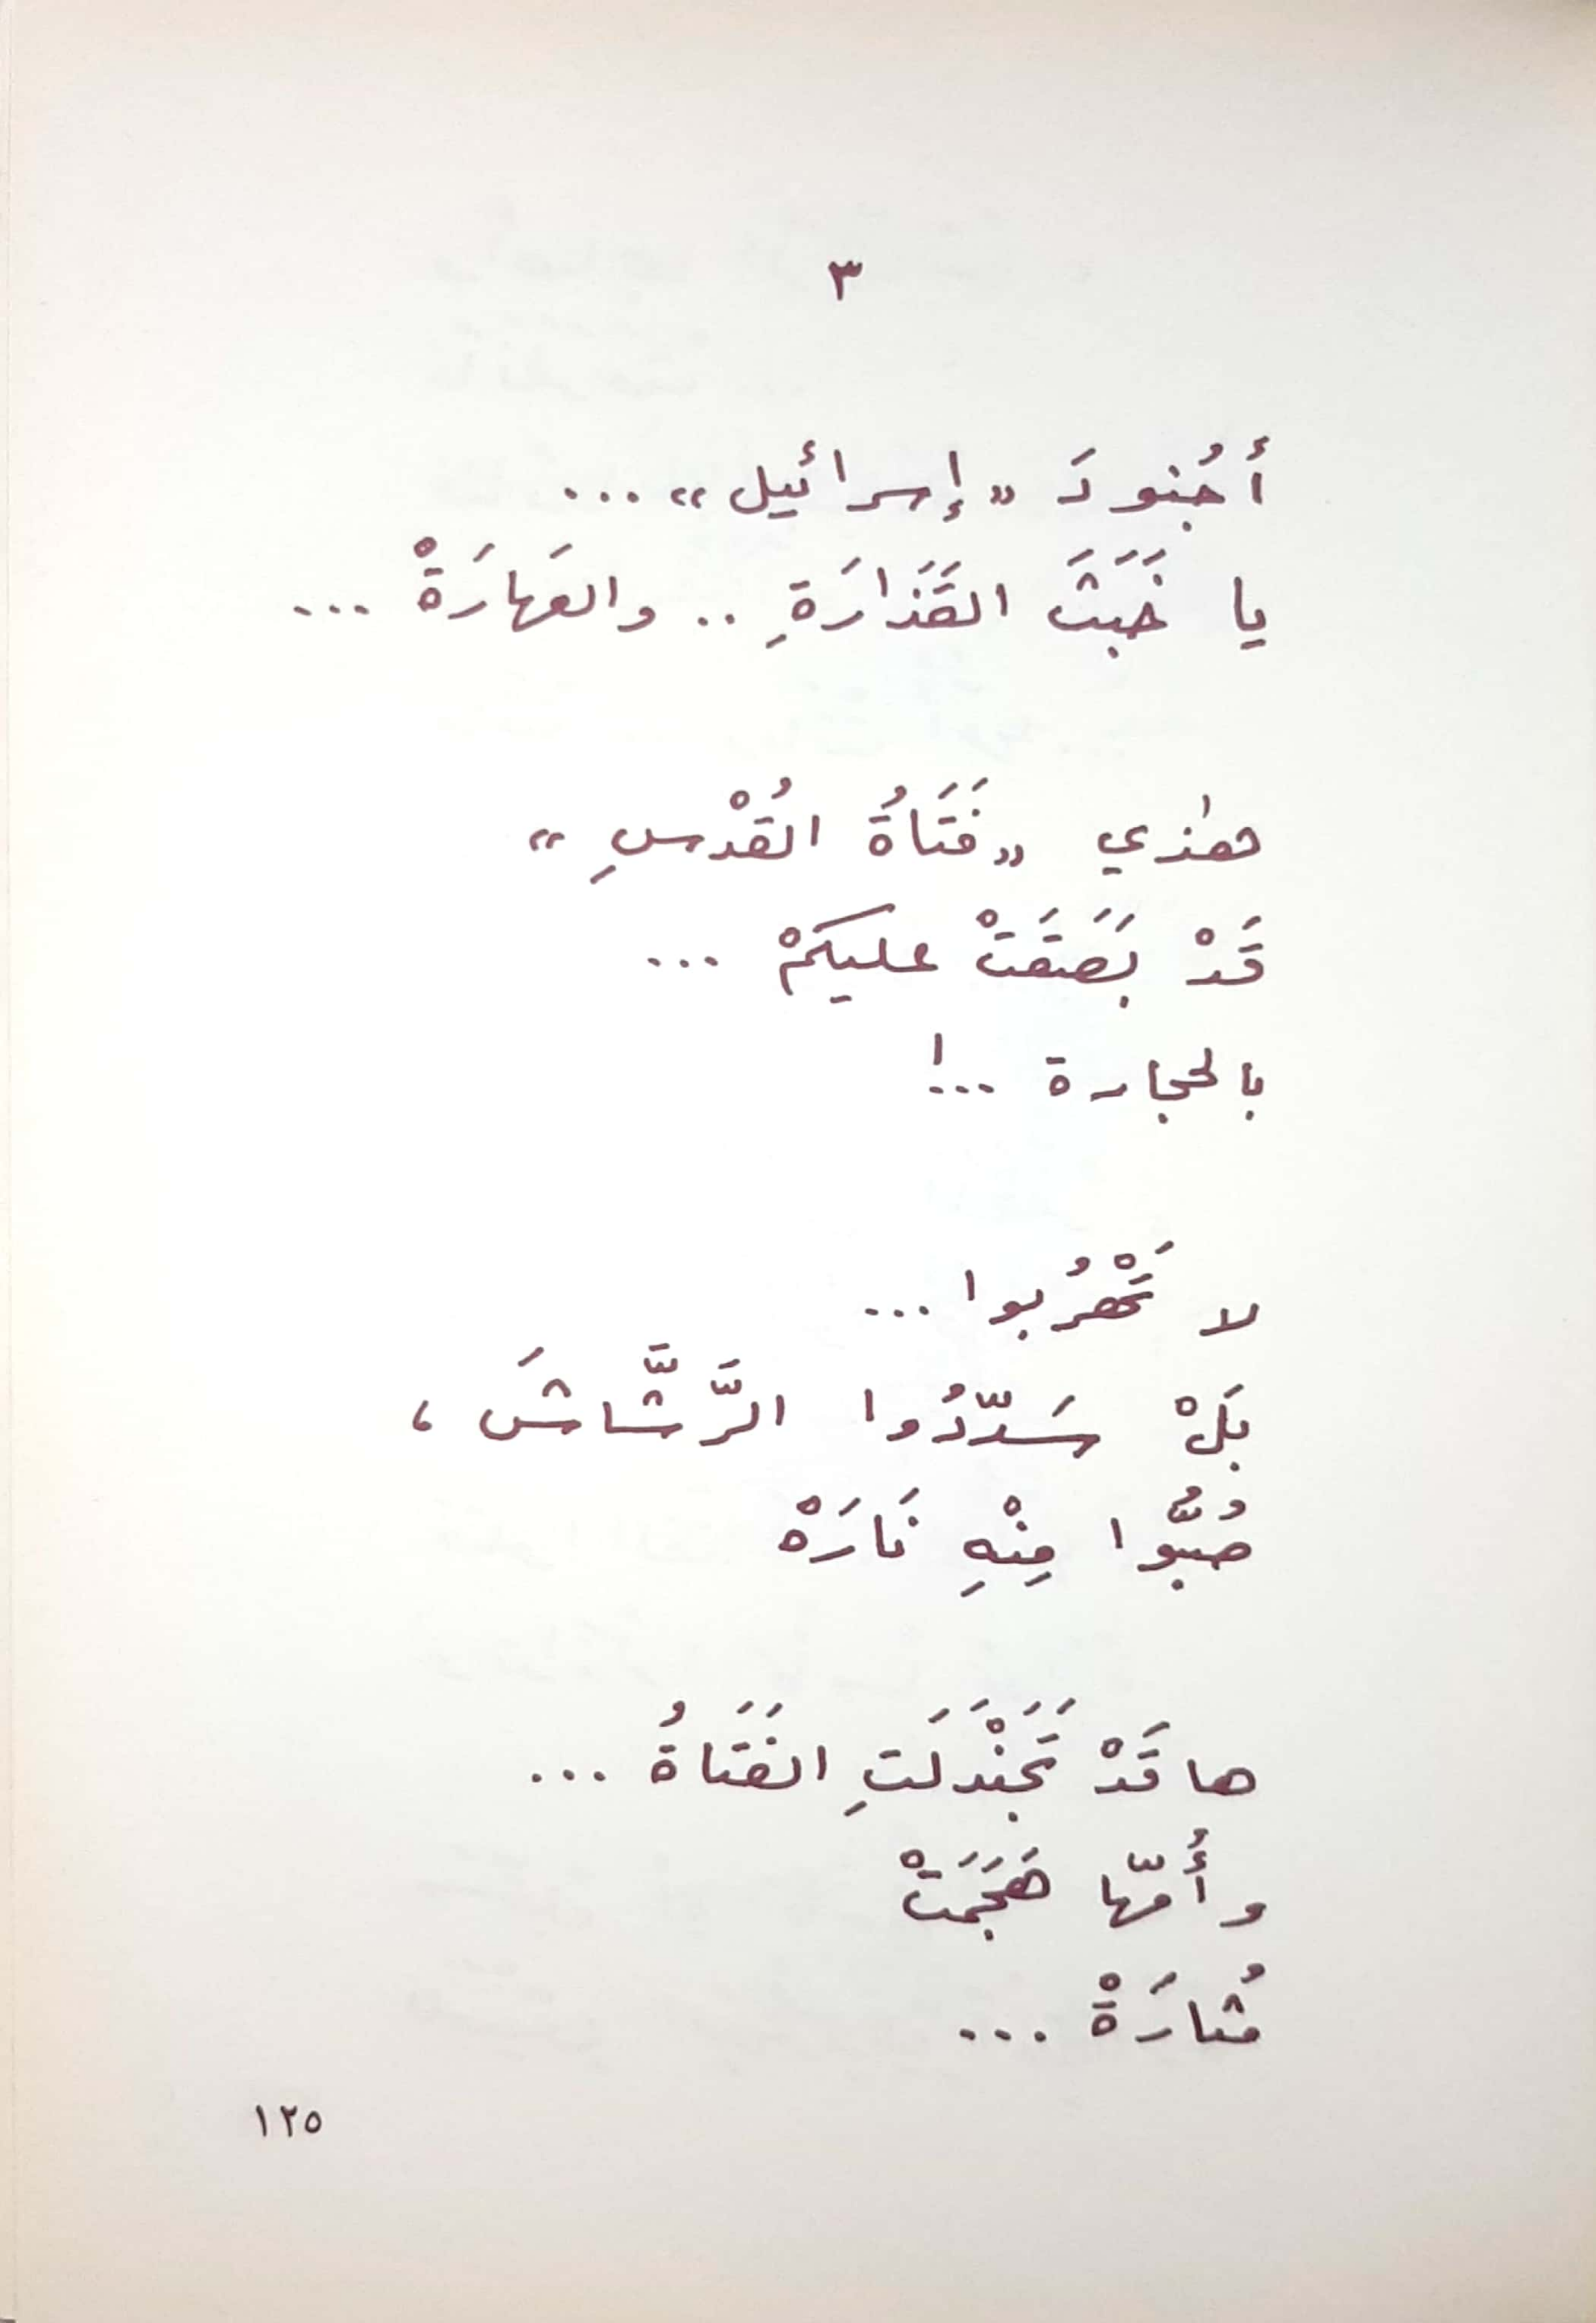 ٣
أَجُنودَ «إسرائيل» ...
يا خَبَثَ القَذَارَةِ .. والعَهارَةْ ...
هٰذي «فَتَاةُ القُدْسِ»
قَدْ بَصَقَتْ عليكمْ ...
بالحجارة ...!
لا تَهْرُبوا ...
بَلْ سَدّدُوا الرَّشَّاشَ ،
صُبُّوا مِنْهِ نَارَهْ
ها قَدْ تَجَنْدَلَتِ الفَتَاةُ ...
وأُمّها هَجَمَتْ
مُثارَةْ ...
١٢٥